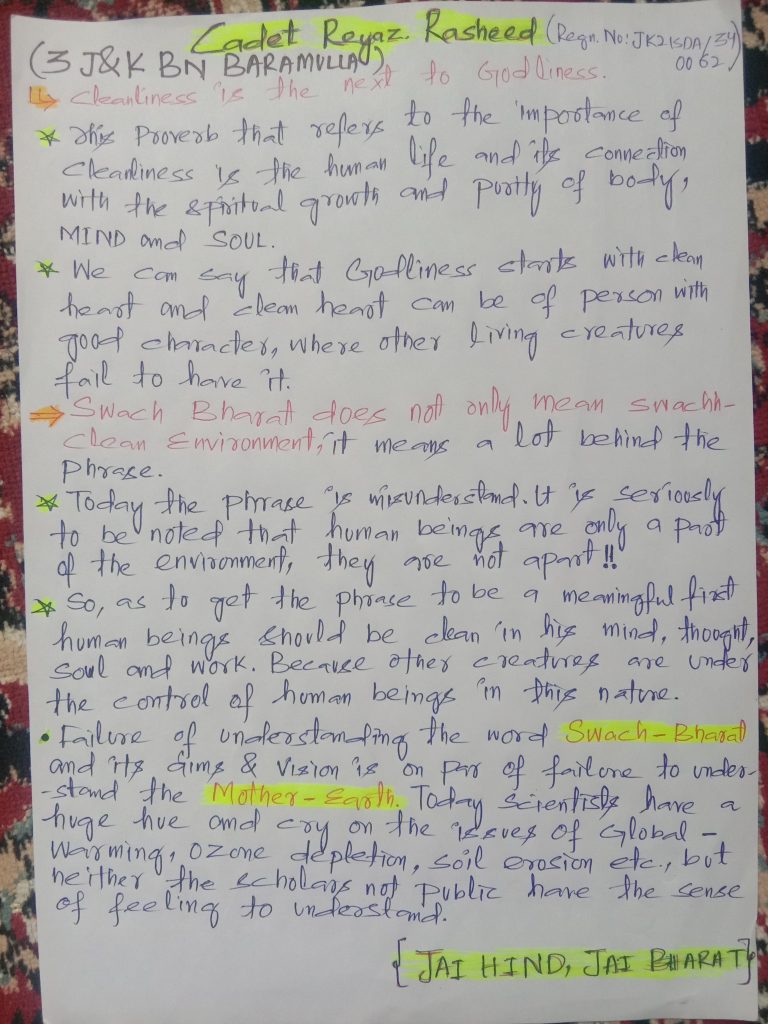 Cadet Reyaz Rasheed (Regn. No: JK21SDA/34
0062)
(3 J&K BN BARAMULLA)
Cleanliness is the next to Godliness.
This Proverb that refers to the importance of
Cleanliness is the human life and its connection
with the spiritual growth and purity of body,
MIND and SOUL.
We can say that Godliness starts with clean
heart and clean heart can be of person with
good character, where other living creatures
fail to have it.
Swach Bharat does not only mean swachh-
clean Environment, it means a lot behind the
Phrase.
Today the phrase is misunderstand. It is seriously
to be noted that human beings are only a part
of the environment, they are not apart!!
So, as to get the phrase to be a meaningful first
human beings should be clean in his mind, thought,
soul and work. Because other creatures are under
the control of human beings in this nature.
Failure of understanding the word Swach-Bharat
and its aims & Vision is on par of failure to under-
-stand the Mother-Earth. Today Scientists have a
huge hue and cry on the issues of Global-
Warming, Ozone depletion, soil erosion etc., but
neither the scholars not public have the sense
of feeling to understand.
{JAI HIND, JAI BHARAT}